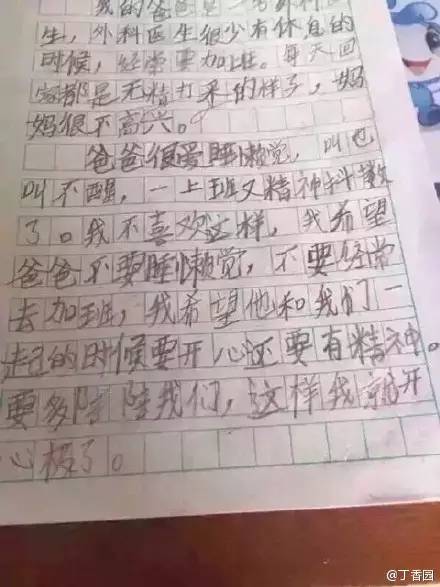 我的爸爸是一名外科医
生，外科医生很少有休息的
时候，经常要加班。每天回
家都是无精打采的样子，妈
妈很不高兴。
爸爸很爱睡懒觉，叫也
叫不醒，一上班又精神抖擞
了。我不喜欢这样，我希望
爸爸不要睡懒觉，不要经常
去加班，我希望他和我们一
起的时候要开心还要有精神。
要多陪陪我们，这样我就开
心极了。
@丁香园